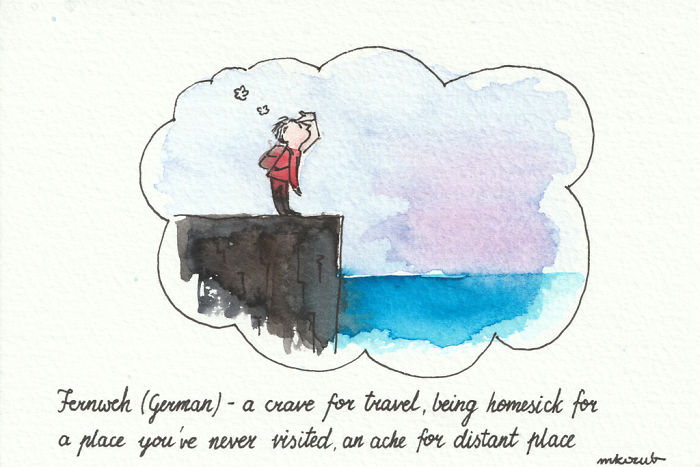 Fernweh (German) - a crave for travel, being homesick for
a place you've never visited, an ache for distant place